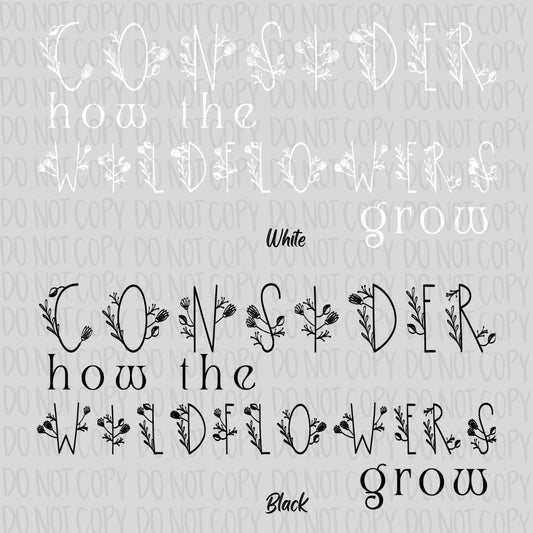 CONSIDER
how the
WILDFLOWERS
grow
White
CONSIDER
how the
WILDFLOWERS
grow
Black
DO NOT COPY DO NOT COPY DO NOT COPY DO NOT COPY